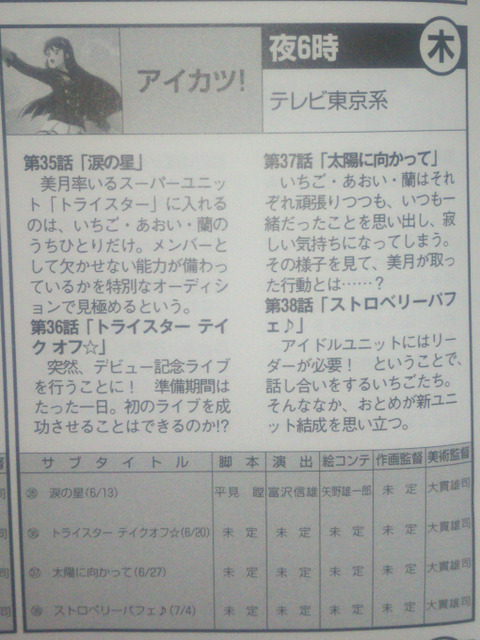 アイカツ!
夜6時
木
テレビ東京系
第35話「涙の星」
美月率いるスーパーユニッ
ト「トライスター」に入れる
のは、いちご・あおい・蘭の
うちひとりだけ。メンバーと
して欠かせない能力が備わっ
ているかを特別なオーディシ
ョンで見極めるという。
第36話「トライスター テイ
ク オフ☆」
突然、デビュー記念ライブ
を行うことに! 準備期間は
たった一日。初のライブを成
功させることはできるのか!?
第37話「太陽に向かって」
いちご・あおい・蘭はそれ
ぞれ頑張りつつも、いつも一
緒だったことを思い出し、寂
しい気持ちになってしまう。
その様子を見て、美月が取っ
た行動とは……?
第38話「ストロベリーパフ
ェ♪」
アイドルユニットにはリー
ダーが必要! ということで、
話し合いをするいちごたち。
そんななか、おとめが新ユニ
ット結成を思い立つ。
サブタイトル 脚本 演出 絵コンテ 作画監督 美術監督
㉟ 涙の星(6/13) 平見 瞠 富沢信雄 矢野雄一郎 未定 大貫雄司
㊱ トライスター テイクオフ☆(6/20) 未定 未定 未定 未定 大貫雄司
㊲ 太陽に向かって(6/27) 未定 未定 未定 未定 大貫雄司
㊳ ストロベリーパフェ♪(7/4) 未定 未定 未定 未定 大貫雄司